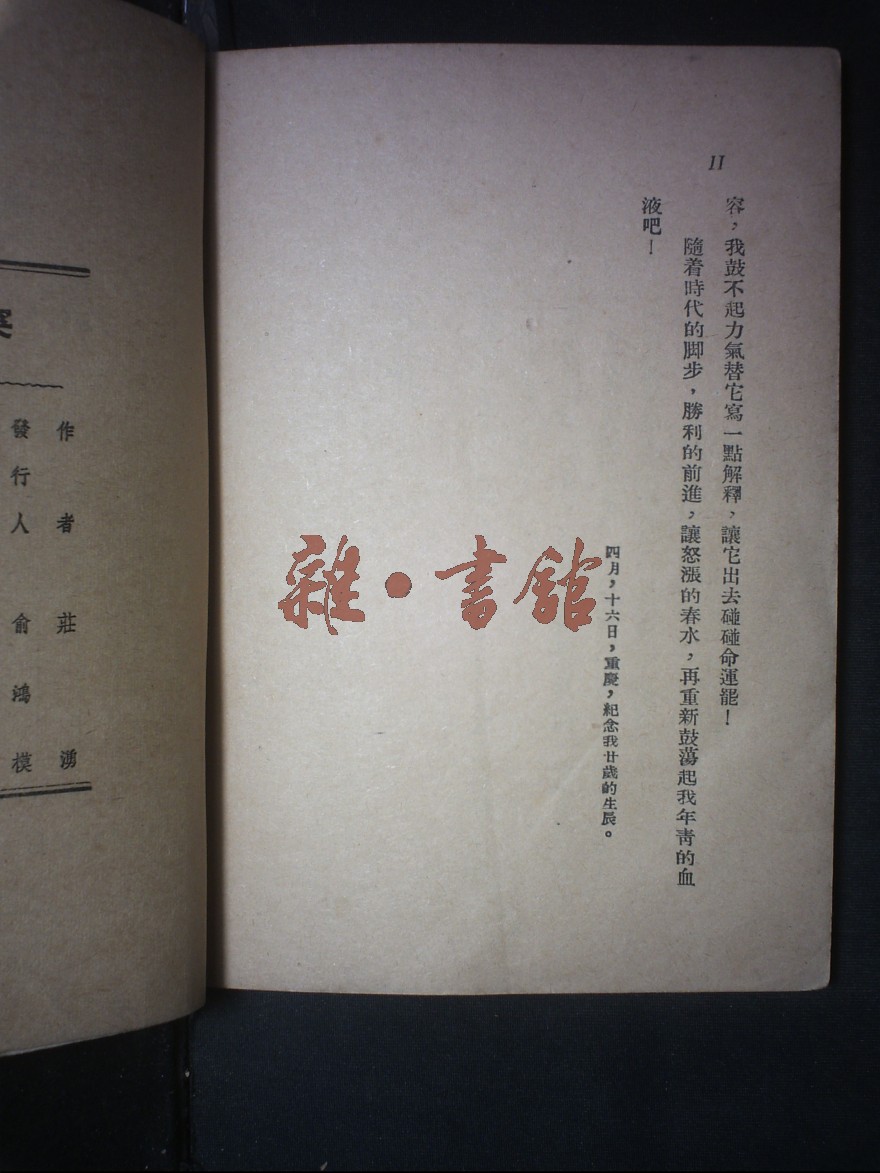 II
容，我鼓不起力氣替它寫一點解釋，讓它出去碰碰命運罷！
隨着時代的脚步，勝利的前進，讓怒漲的春水，再重新鼓蕩起我年靑的血
液吧！
四月，十六日，重慶，紀念我廿歲的生辰。
雜·書館
作者 莊湧
發行人 俞鴻模